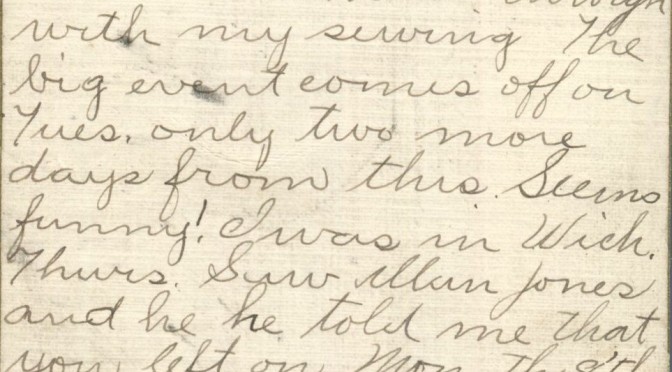 through
with my sewing The
big event comes off on
Tues. only two more
days from this. Seems
funny! I was in Wich.
Thurs. Saw Allan Jones
and he he told me that
you left on Mon. the 9th